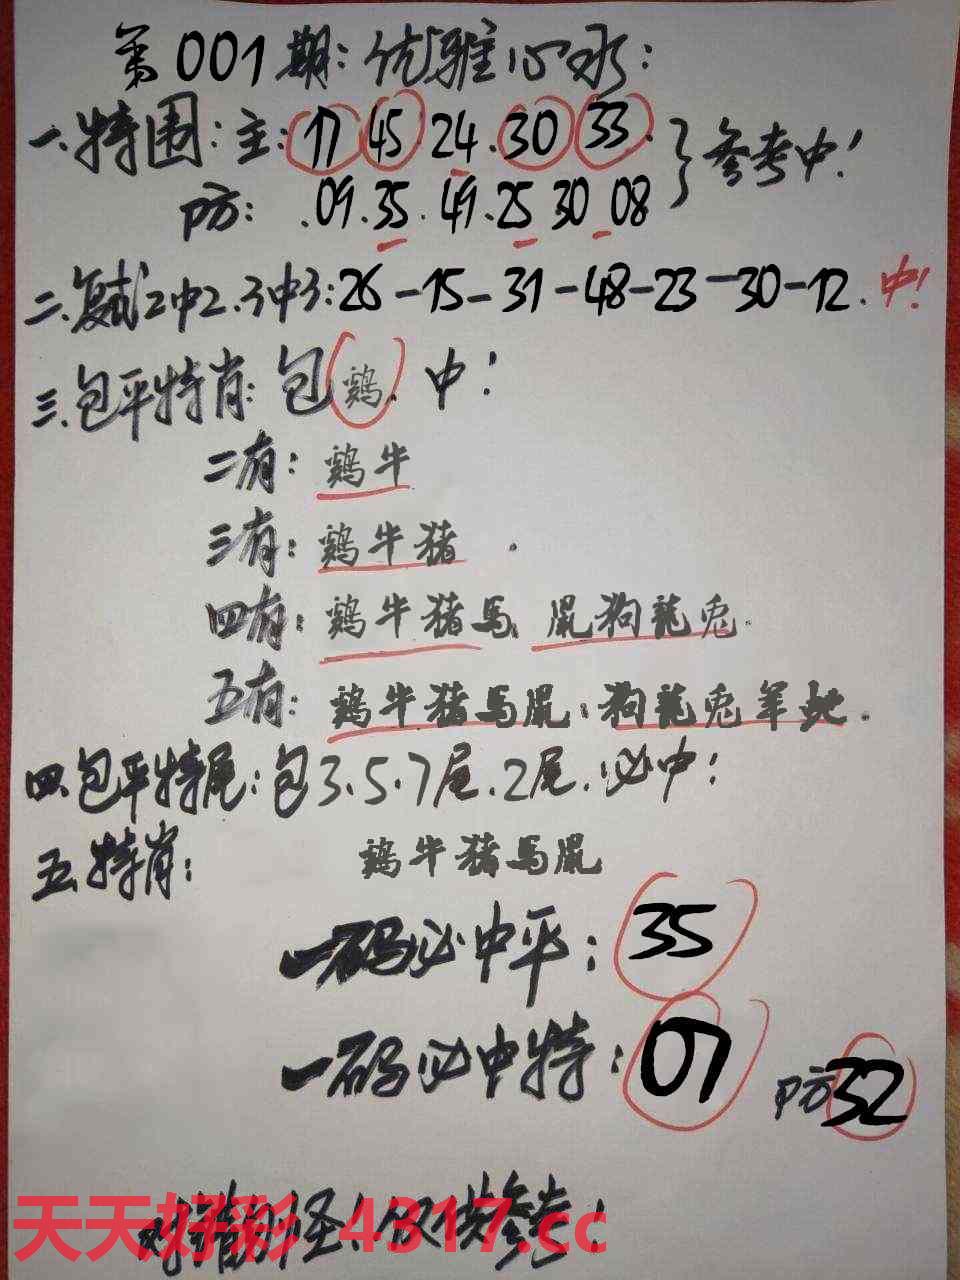 第001期:优雅心水:
一.特围:主:17 45 24.30 33.}参考中!
防:.09.35.49.25 30 08
二.复式2中2.3中3:26-15-31-48-23-30-12.中!
三.包平特肖:包鷄.中!
二有:鷄牛
三有:鷄牛猪.
四有:鷄牛猪馬 鼠狗龍兔.
五有:鷄牛猪馬鼠:狗龍兔羊虵.
四.包平特尾:包3.5.7尾.2尾.必中!
五.特肖:鷄牛猪馬鼠
一码必中平:35
一码必中特:07 防32
对错别怪!仅供参考!
天天好彩 4317.cc